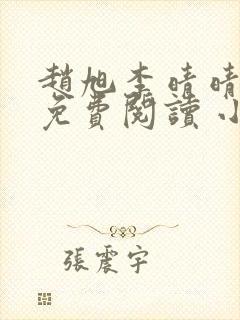 趙旭李晴晴
免費閱讀小
張震宇